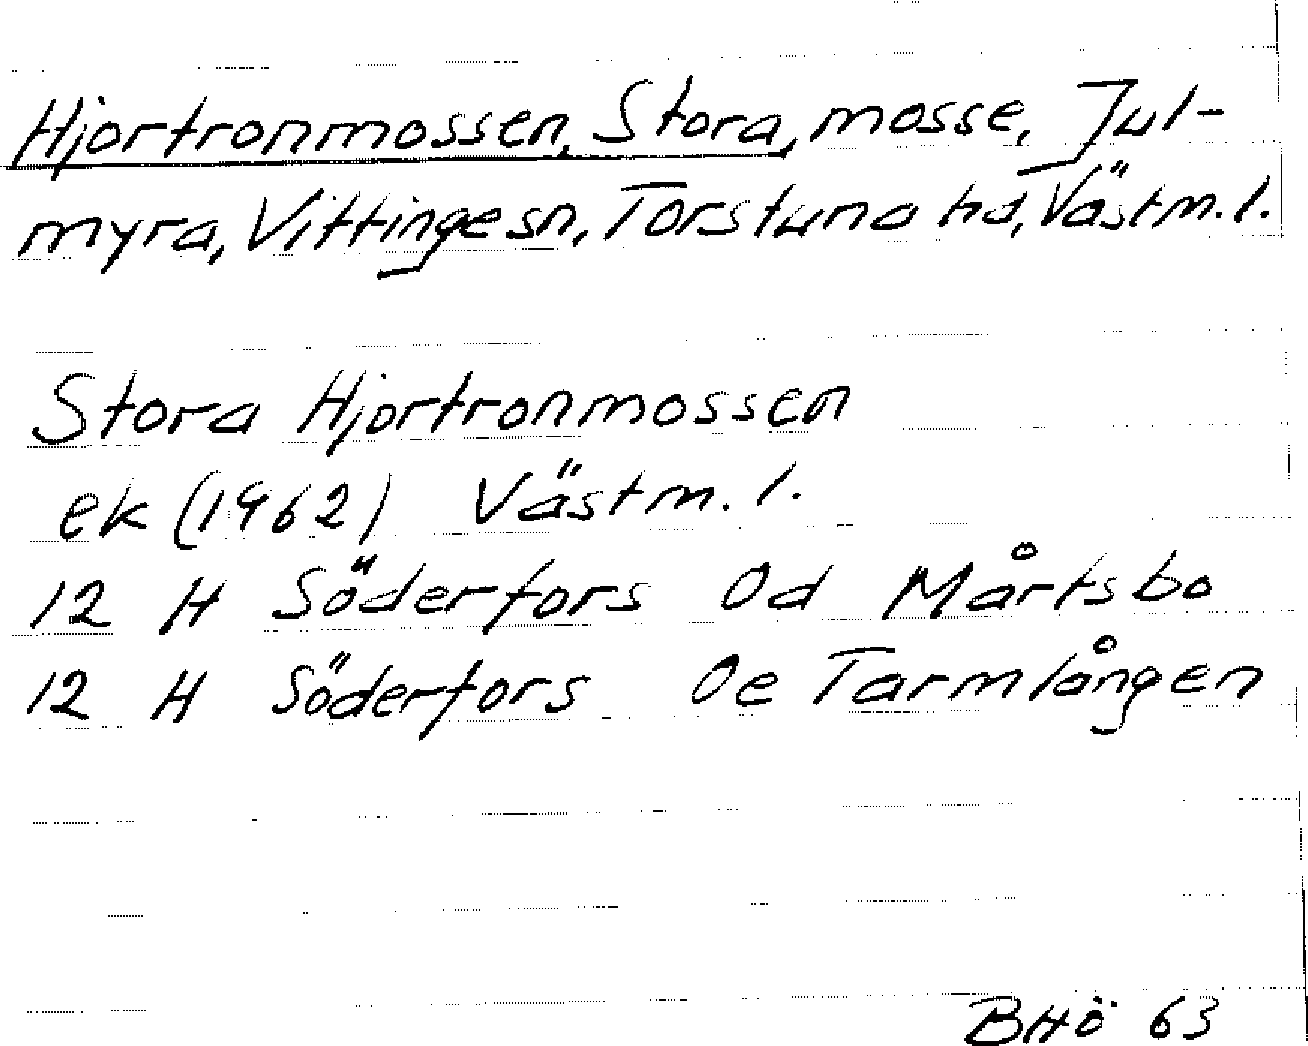 Hjortronmossen, Stora, mosse, Jul-
myra, Vittinge sn, Torstuna hd, Västm. l.
Stora Hjortronmossen
ek (1962) Västm. l.
12 H Söderfors 0d Mårtsbo
12 H Söderfors 0e Tarmlången
BHÖ 63